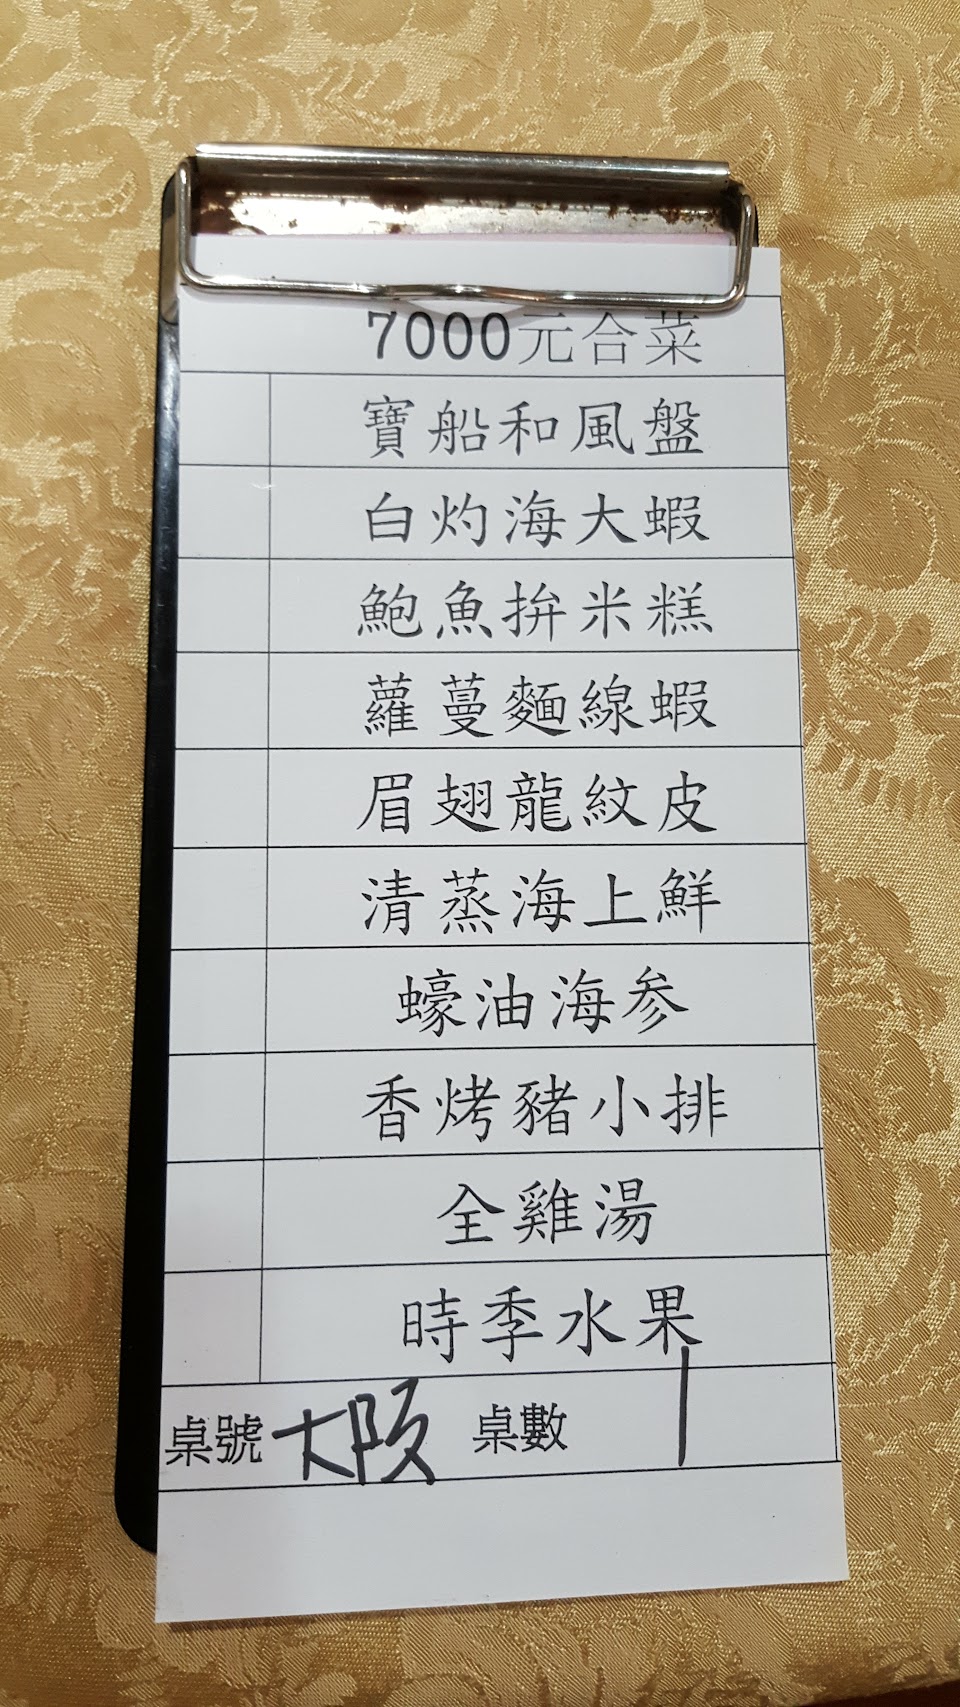 7000元合菜
寶船和風盤
白灼海大蝦
鮑魚拚米糕
蘿蔓麵線蝦
眉翅龍紋皮
清蒸海上鮮
蠔油海参
香烤豬小排
全雞湯
時季水果
桌號 大阪 桌數 1